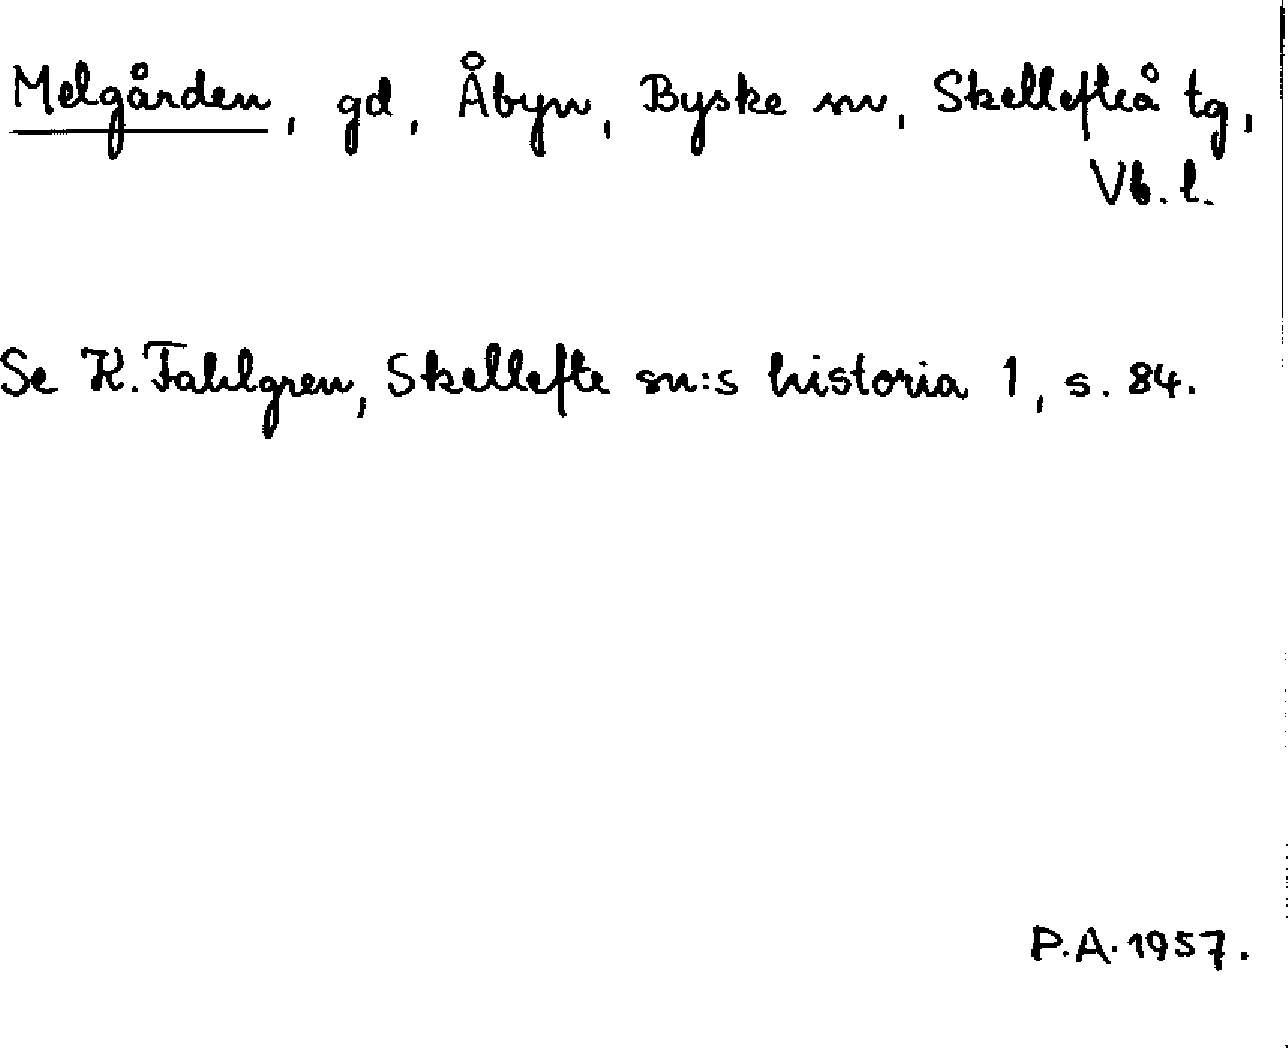 Melgården, gd, Åbyn, Byske sn, Skellefteå tg,
Vb. l.
Se K. Fahlgren, Skellefte sn:s historia 1, s. 84.
P.A. 1957.